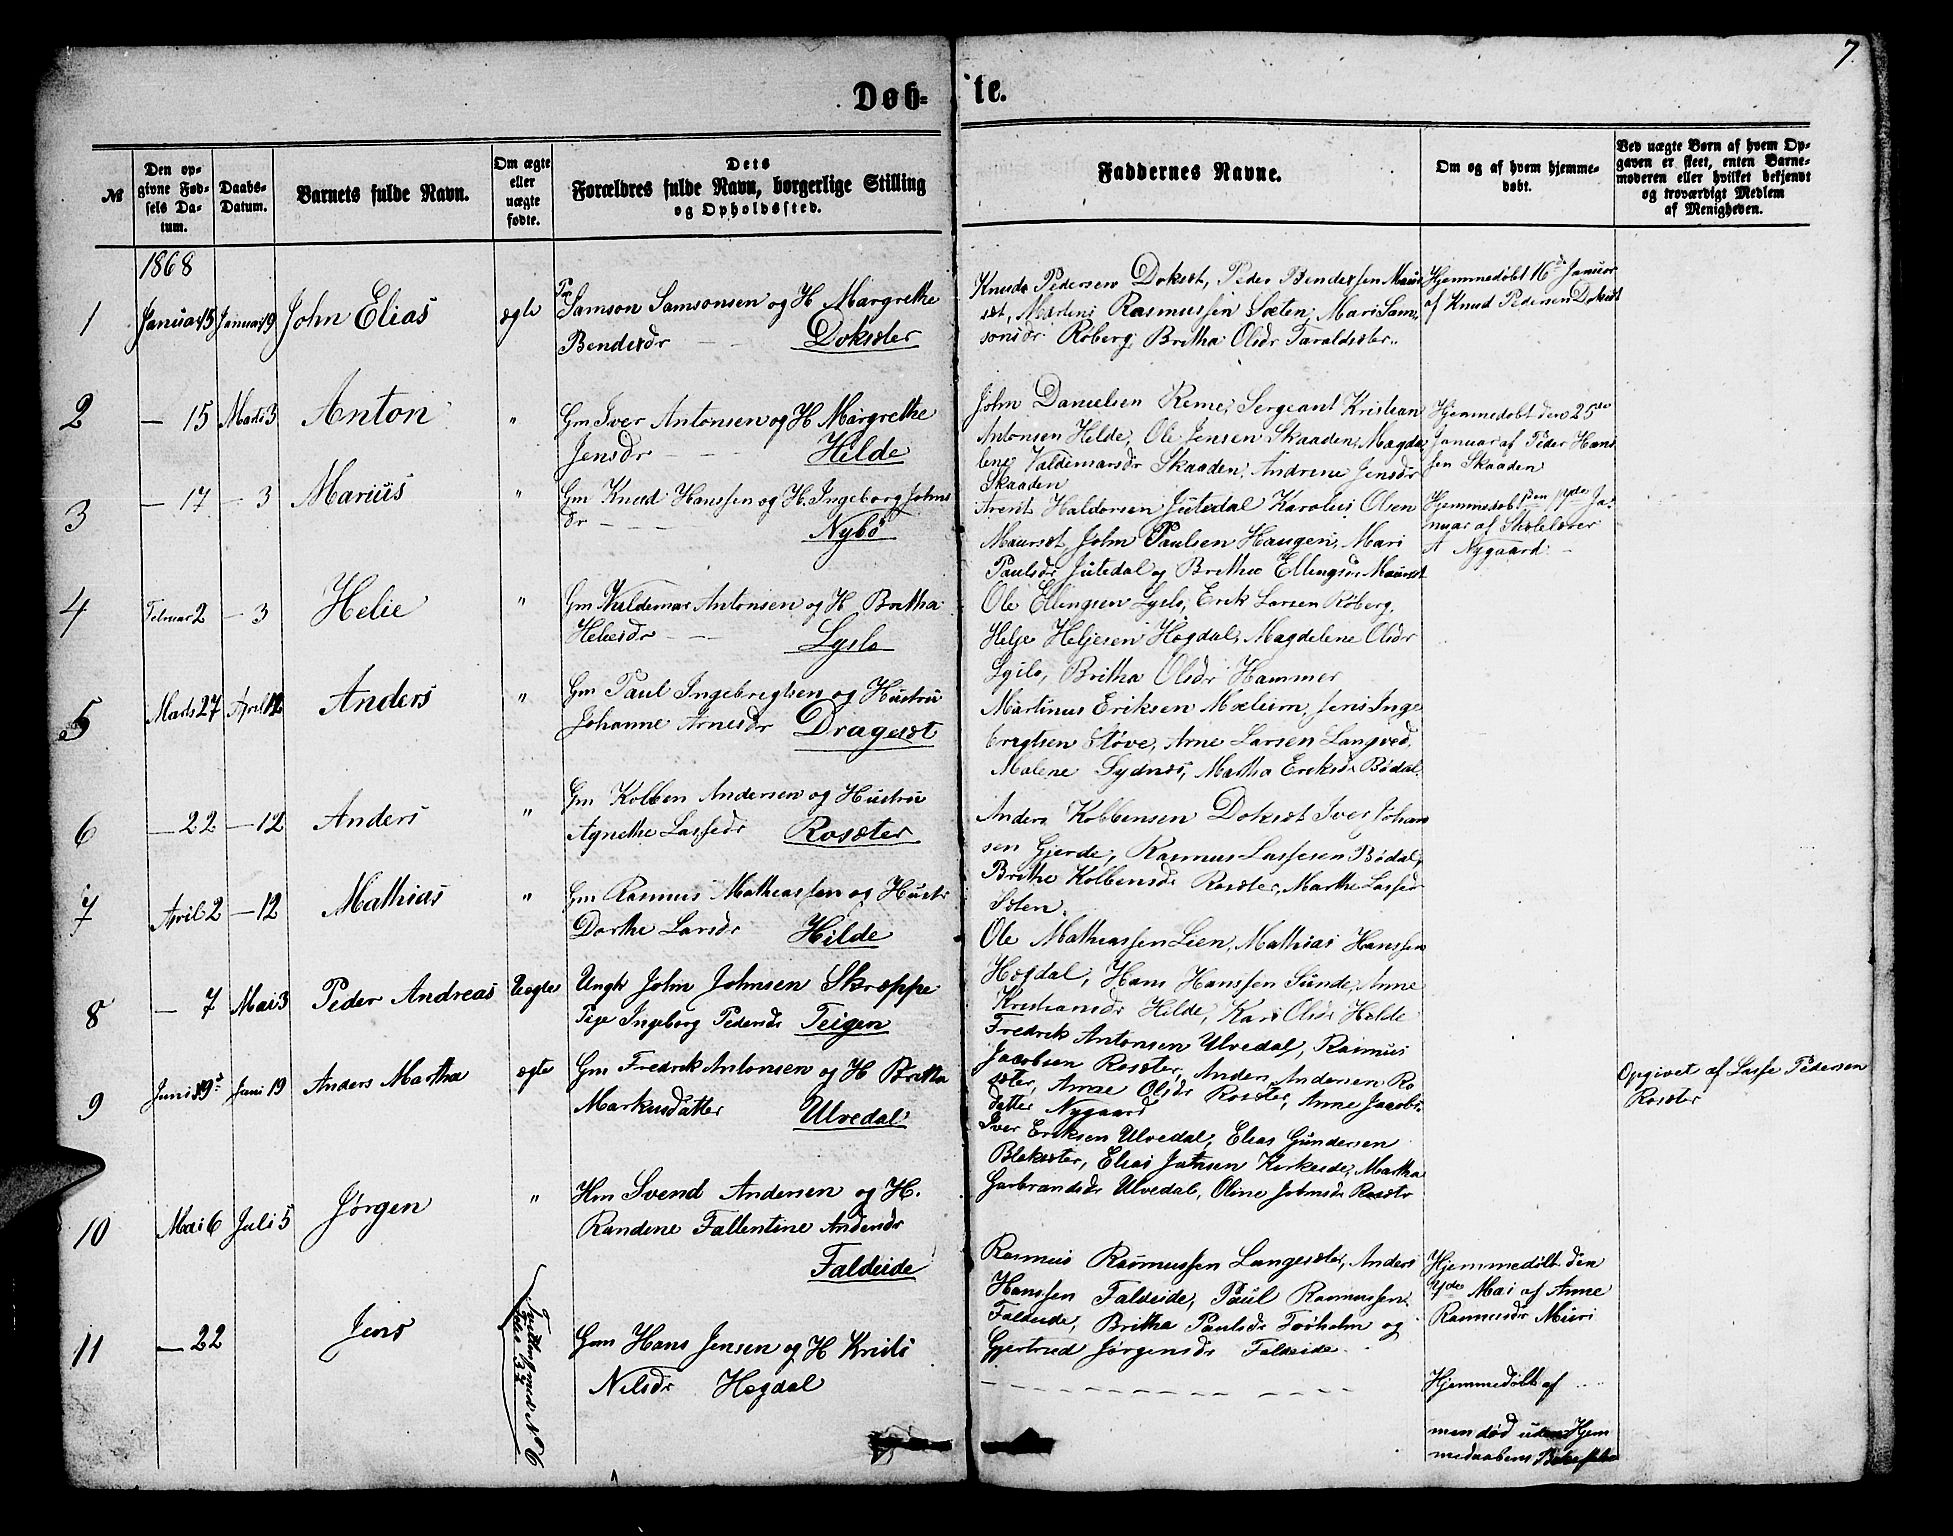 7.
Døb-
te.
№
Den op-
givne Fød-
sels Da-
tum.
Daabs-
Datum.
Barnets fulde Navn.
Om ægte
eller
uægte
fødte.
Dets
Forældres fulde Navn, borgerlige Stilling
og Opholdssted.
Faddernes Navne.
Om og af hvem hjemme-
døbt.
Ved uægte Børn af hvem Op-
gaven er skeet, enten Barne-
moderen eller hvilket bekjendt
og troværdigt Medlem
af Menigheden.
1868
1
Januar 15
Januar 19
John Elias
ægte
Samson Samsonsen og H Margrethe
Bendixdr Doksæter
Knud Pedersen Doksæt, Peder Bendixsen Maur
sæt, Mærtens Rasmussen Sæten, Mari Sam
sonsdr Roberg, Britha Olsdr Taraldsæter
Hjemmedøbt 16de Januar
af Knud Pedersen Doksæt
2
— 15
Marts 3
Anton
"
Gm Iver Antonsen og H Margrethe
Jensdr Hilde
John Danielsen Reme, Sergeant Kristian
Antonsen Hilde, Ole Jensen Skaaden, Magda
lene Valdemarsdr Skaaden, Andrine Jensdr
Skaaden
Hjemmedøbt den 25de
Januar af Peder Hans
sen Skaaden
3
— 17
— 3
Marius
"
Gm Knud Hanssen og H. Ingeborg Johns
dr Nybø
Arent Haldorsen Jutedal Karolus Olsen
Maursæt John Paulsen Haugen, Mari
Paulsdr Jutedal og Brithe Ellingsdr Maursæt
Hjemmedøbt den Ja-
nuar af Skolelærer
A Nygaard
4
Februar 2
— 3
Helie
"
Gm Valdemar Antonsen og H Britha
Heliesdr Lyslo
Ole Ellingsen Lyslo, Erik Larsen Roberg,
Helje Heljesen Høgdal, Magdelene Olsdr
Lyslo, Britha Olsdr Hammer
5
Marts 27
April 12
Anders
"
Gm Paul Ingebrigtsen og Hustru
Johanne Arnesdr Dragesæt
Martinus Eriksen Mælem, Jens Inge
brigtsen Støve, Arne Larsen Langved,
Malene Sydnes, Martha Eriksdr Bødal
6
— 22
— 12
Anders
"
Gm Kolben Andersen og Hustru
Agnethe Lassedr Rosæter
Anders Kolbensen Doksæt Iver Johan
sen Gjerde, Rasmus Lassesen Bødal,
Brithe Kolbensdr Rosæter, Marthe Lassedr
Sæten.
7
April 2
— 12
Mathias
"
Gm Rasmus Mathiassen og Hustr
Dorthe Larsdr Hilde
Ole Mathiassen Lien, Mathias Hanssen
Høgdal, Hans Hanssen Sunde, Anne
Kristiansdr Hilde, Kari Olsdr Hilde
8
— 7
Mai 3
Peder Andreas
Uægte
Ungk John Johnsen Skreppe
Pige Ingeborg Pedersdr Teigen
Fredrik Antonsen Ulvedal, Rasmus
Jacobsen Rosæter, Anders Andersen Ro
sæter, Anne Olsdr Rosæter, Anne Jacobs-
datter Nygaard
Opgivet af Lasse Pedersen
Rosæter
9
Juni
Juni 19
Anders Martha
ægte
Gm Fredrik Antonsen og H Britha
Markusdatter Ulvedal
Iver Eriksen Ulvedal, Elias Gundersen
Bleksæter, Elias Jetmsen Kirkeide, Martha
Garbrandsdr Ulvedal, Oline Johnsdr Rosæter
10
Mai 6
Juli 5
Jørgen
"
Hm Svend Andersen og H.
Randene Fallentine Andersdr
Faldeide
Rasmus Rasmussen Langesæter, Anders
Hanssen Faldeide, Paul Rasmussen
Faldeide, Britha Paulsdr Forholm og
Gjertrud Jørgensdr Faldeide
Hjemmedøbt den
Mai af Anne
Rasmusdr Muri
11
— 22
Jens
Tvilling med No 6
Gm Hans Jensen og H Kristi
Nilsdr Høgdal
Hjemmedøbt af
men død uden Hjem
medaabens